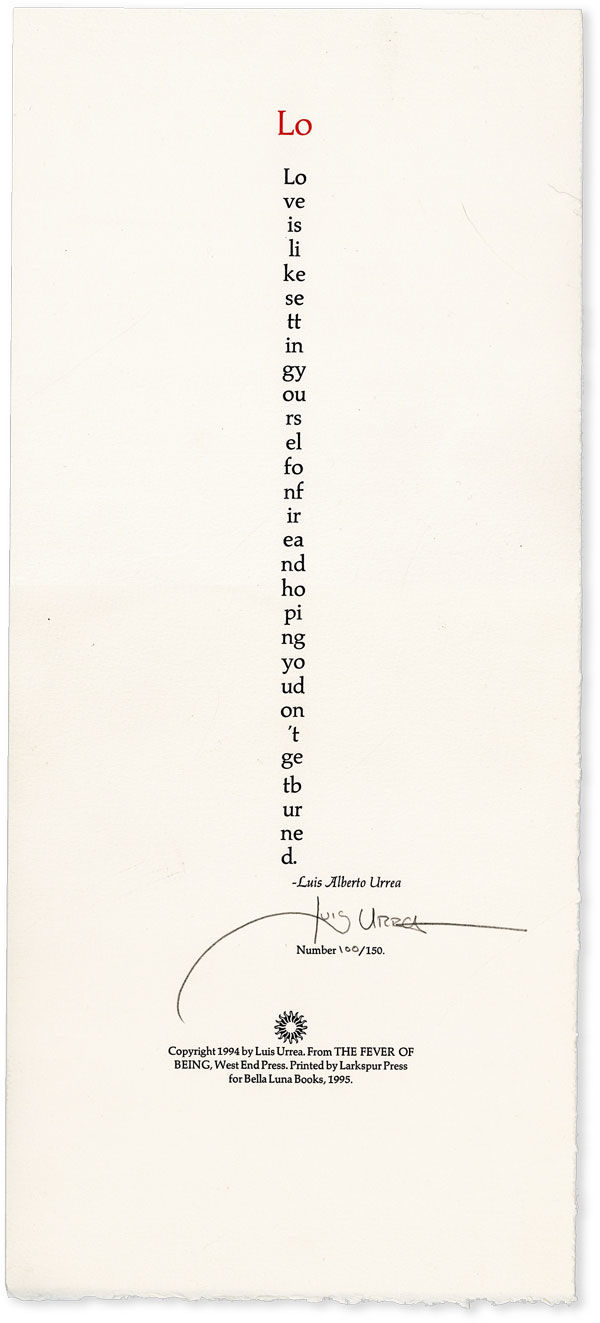 Lo
Lo
ve
is
li
ke
se
tt
in
gy
ou
rs
el
fo
nf
ir
ea
nd
ho
pi
ng
yo
ud
on
't
ge
tb
ur
ne
d.
-Luis Alberto Urrea
Luis Urrea
Number 100/150.
Copyright 1994 by Luis Urrea. From THE FEVER OF
BEING, West End Press. Printed by Larkspur Press
for Bella Luna Books, 1995.